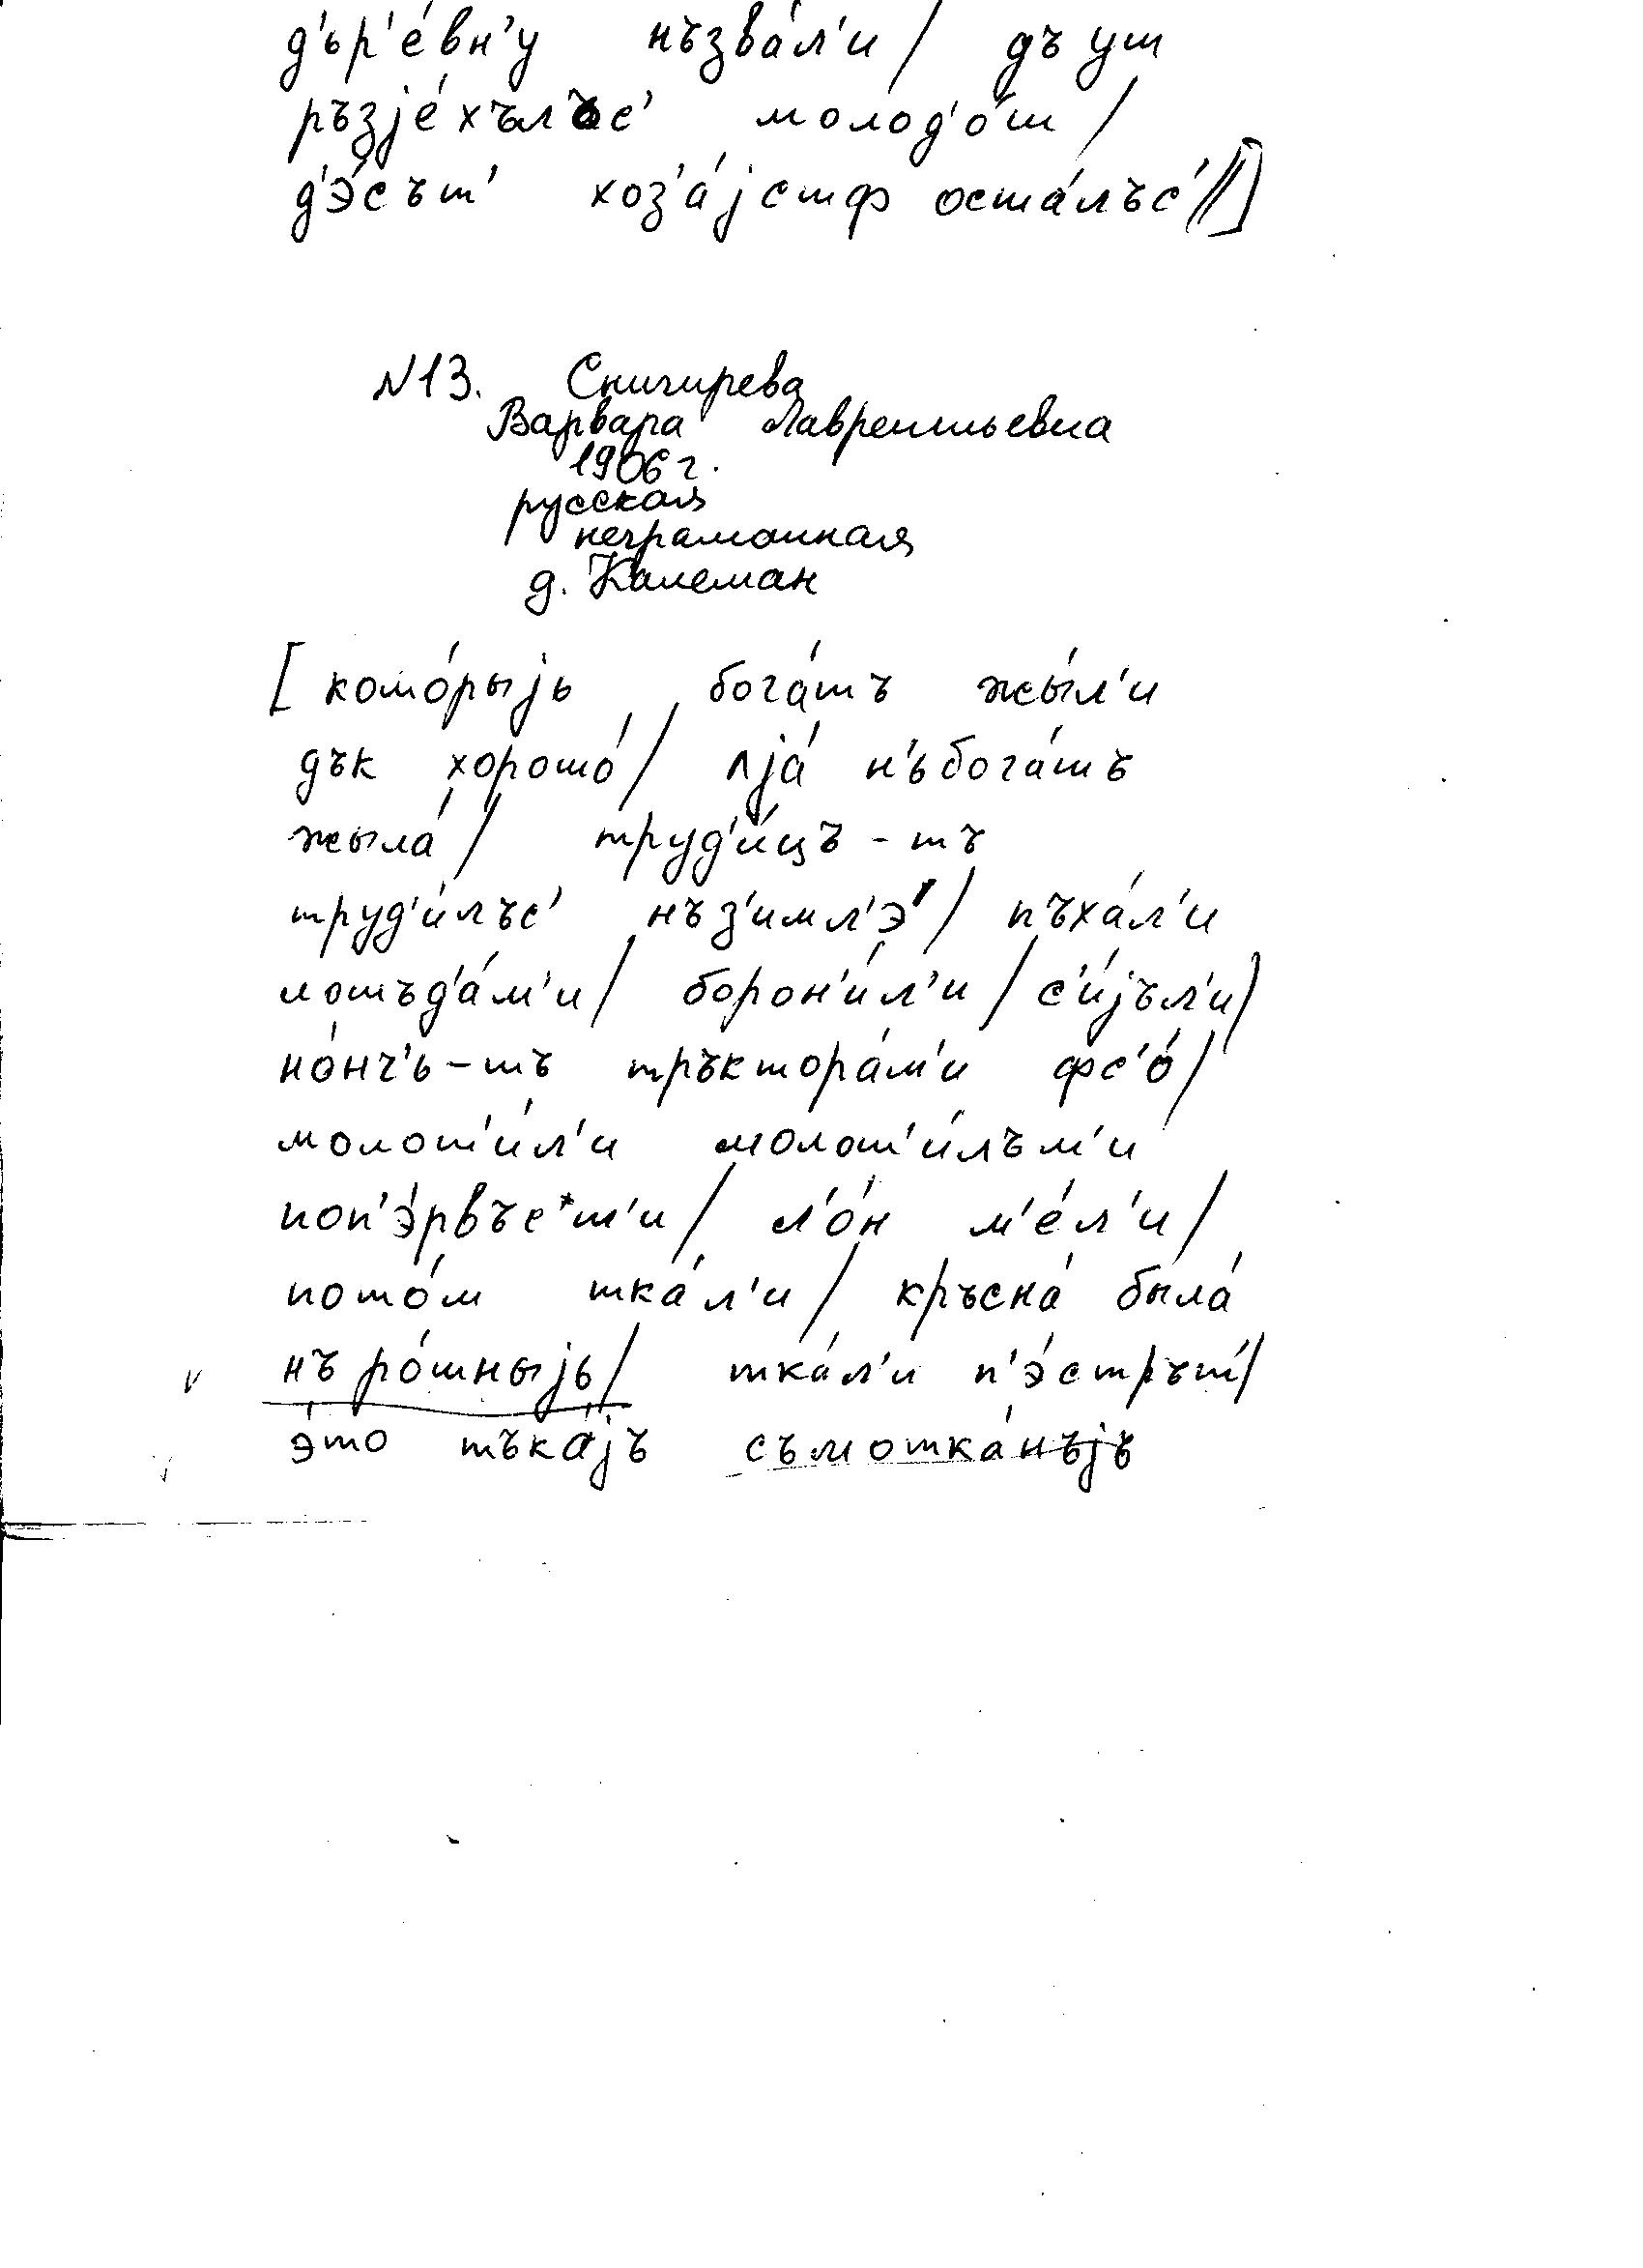 д'ьр'е́вн'у нъзва́л'и/ дъ уш
ръзjе́хълъс' молод'о́ш/
д'э́сът' хоз'а́jстф оста́лъс'//]
N13. Снигирева
Варвара Лаврентьевна
1906 г.
русская
неграмотная
д. Калеман
[ кото́рыjь бога́тъ жы́л'и
дък хорошо́/ ʌjа́ н'ьбога́тъ
жыла́/ труд'и́цъ-тъ
труд'и́лъс' нъз'имл'э́/ пъха́л'и
лошъд'а́м'и/ борон'и́л'и/ с'и́jъл'и/
но́нч'ь-тъ тръктора́м'и фс'о́/
молот'и́л'и молот'и́лъм'и
поп'э́рвъс'т'и/ л'о́н м'е́л'и/
пото́м тка́л'и/ кръсна́ была́
v нъ ро́шныjь/ тка́л'и п'э́стрът'/
v э́то тъка́jъ съмотка́нъjъ